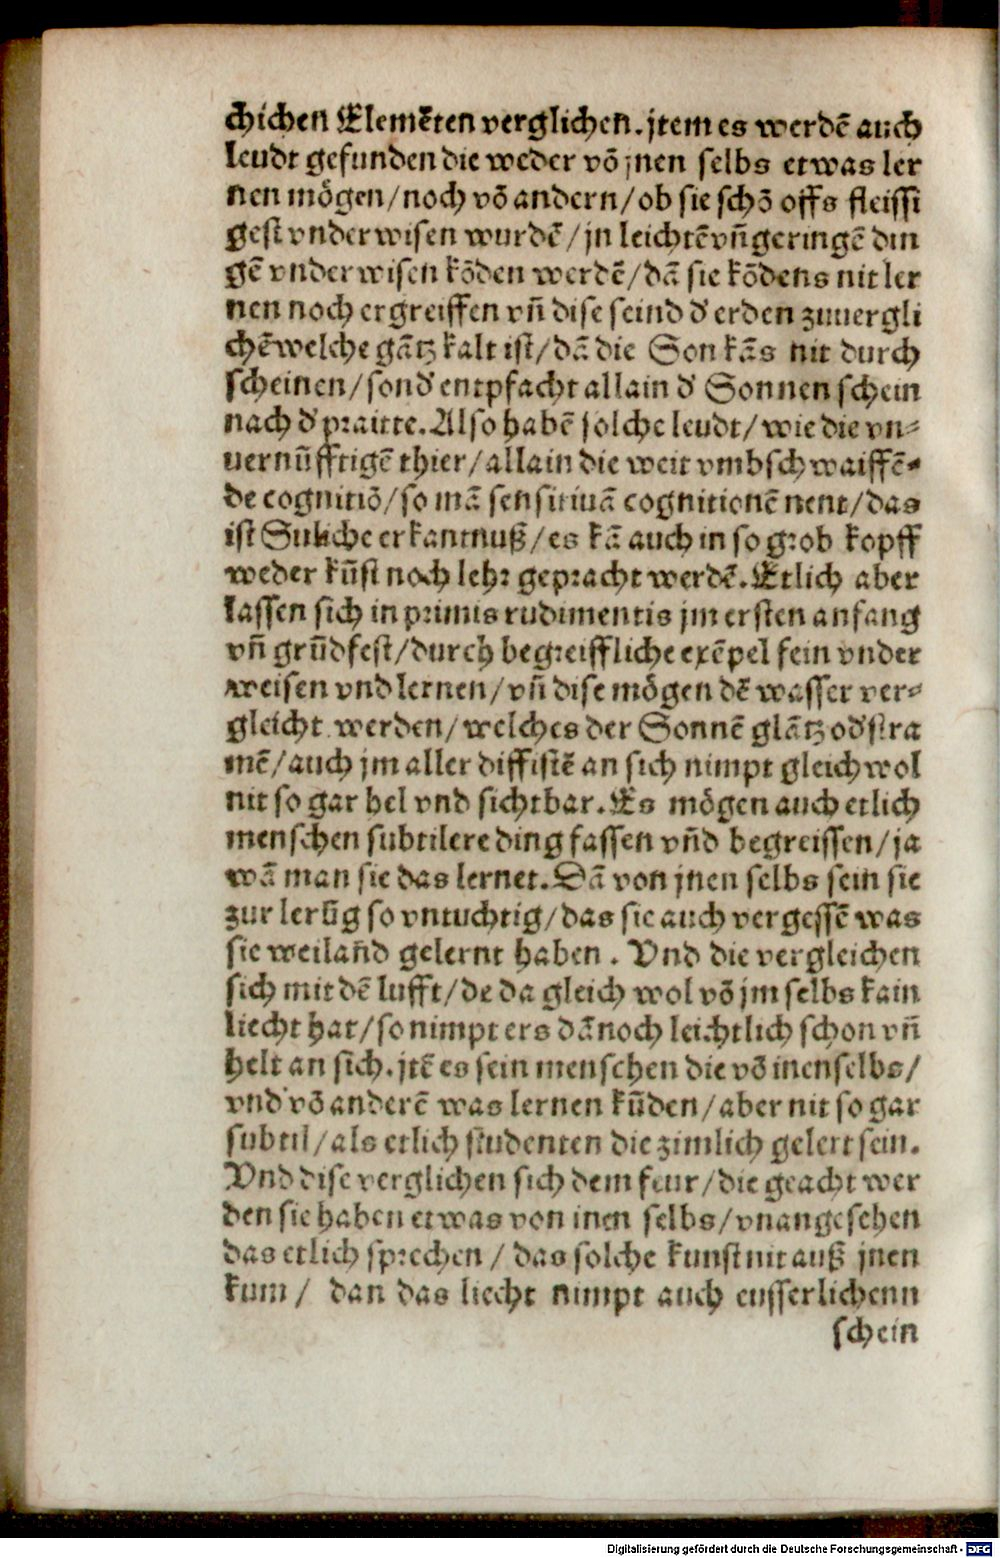 chichen Elemēten verglichen. jtem es werdē auch
leudt gefunden die weder vō jnen selbs etwas ler
nen mögen/noch vō andern/ob sie schō offs fleissi
gest vnderwisen wurdē/jn leichtē vñ geringē din
gē vnderwisen kōden werdē/dā sie kōdens nit ler
nen noch ergreiffen vñ dise seind d' erden zuuergli
chē welche gātz kalt ist/dā die Son kās nit durch
scheinen/sond' entpfacht allain d' Sonnen schein
nach d' praitte. Also habē solche leudt/wie die vn⸗
vernūfftigē thier/allain die weit vmbschwaiffē⸗
de cognitiō/so mā sensitiuā cognitionē nent/das
ist Siñliche erkantnuß/es kā auch in so grob kopff
weder kūst noch lehr gepracht werdē. Etlich aber
lassen sich in primis rudimentis jm ersten anfang
vñ grūdfest/durch begreiffliche exēpel fein vnder
weisen vnd lernen/vñ dise mögen dē wasser ver⸗
gleicht werden/welches der Sonnē glātz od' stra
mē/auch jm aller diffistē an sich nimpt gleich wol
nit so gar hel vnd sichtbar. Es mögen auch etlich
menschen subtilere ding fassen vñd begreissen/ja
wā man sie das lernet. Dā von jnen selbs sein sie
zur lerūg so vntuchtig/das sie auch vergessē was
sie weilañd gelernt haben. Vnd die vergleichen
sich mit dē lufft/de da gleich wol vō jm selbs kain
liecht hat/so nimpt ers dānoch leichtlich schon vñ
helt an sich. jtē es sein menschen die vō inen selbs/
vnd vō anderē was lernen kūden/aber nit so gar
subtil/als etlich studenten die zimlich gelert sein.
Vnd dise verglichen sich dem feur/die geacht wer
den sie haben etwas von inen selbs/vnangesehen
das etlich sprechen/das solche kunst nit auß jnen
kum/ dan das liecht nimpt auch eusserlichenn
schein
Digitalisierung gefördert durch die Deutsche Forschungsgemeinschaft - DFG